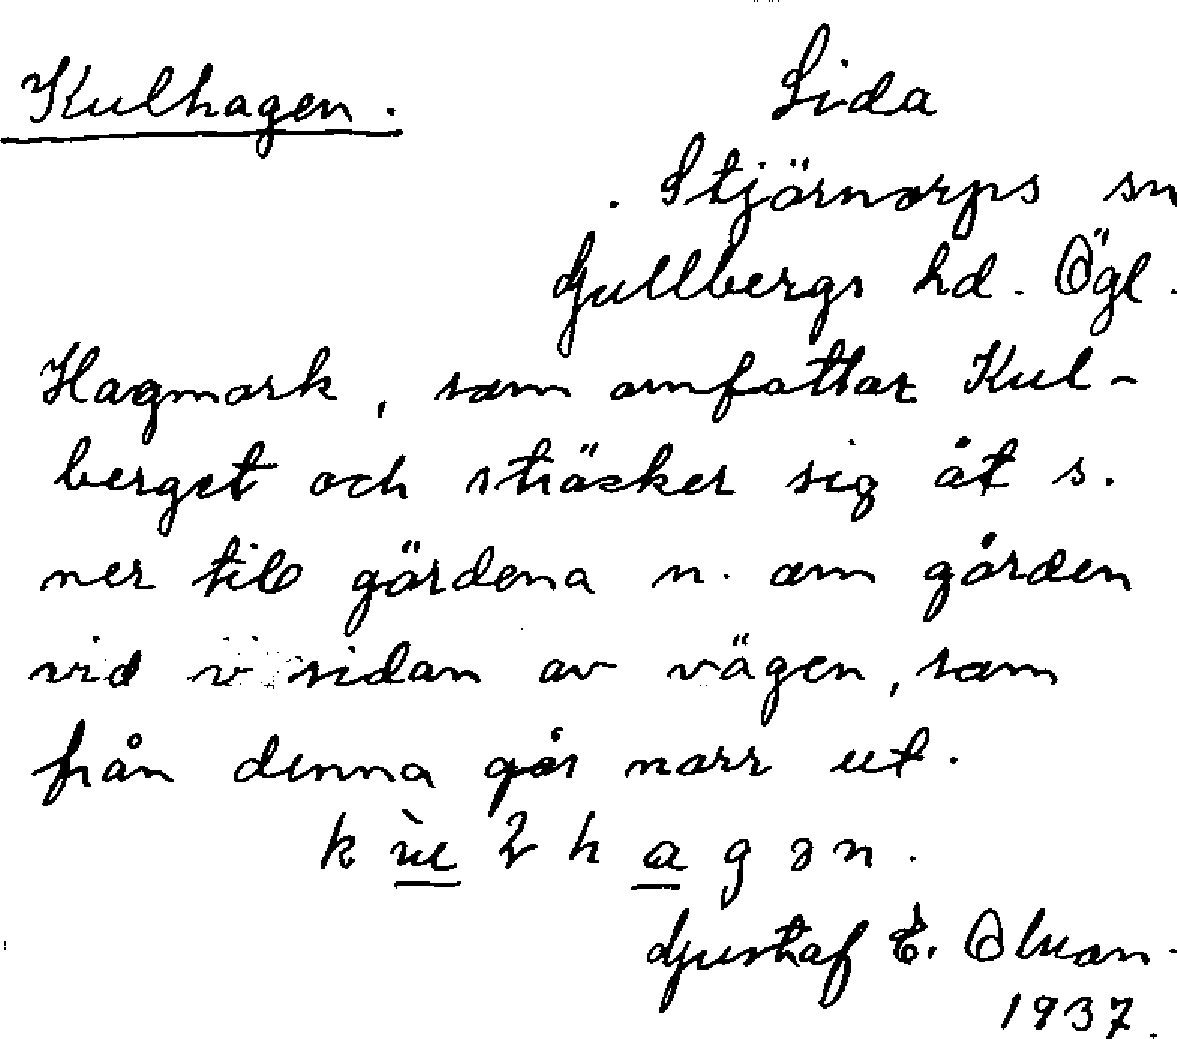 Kulhagen.
Lida
Stjärnorps sn
Gullbergs hd. Ögl.
Hagmark, som omfattar Kul-
berget och sträcker sig åt s.
ner till gärdena n. om gården
vid v sidan av vägen, som
från denna går norr ut.
k ù l h a g ə n.
Gustaf E. Olsson
1937.